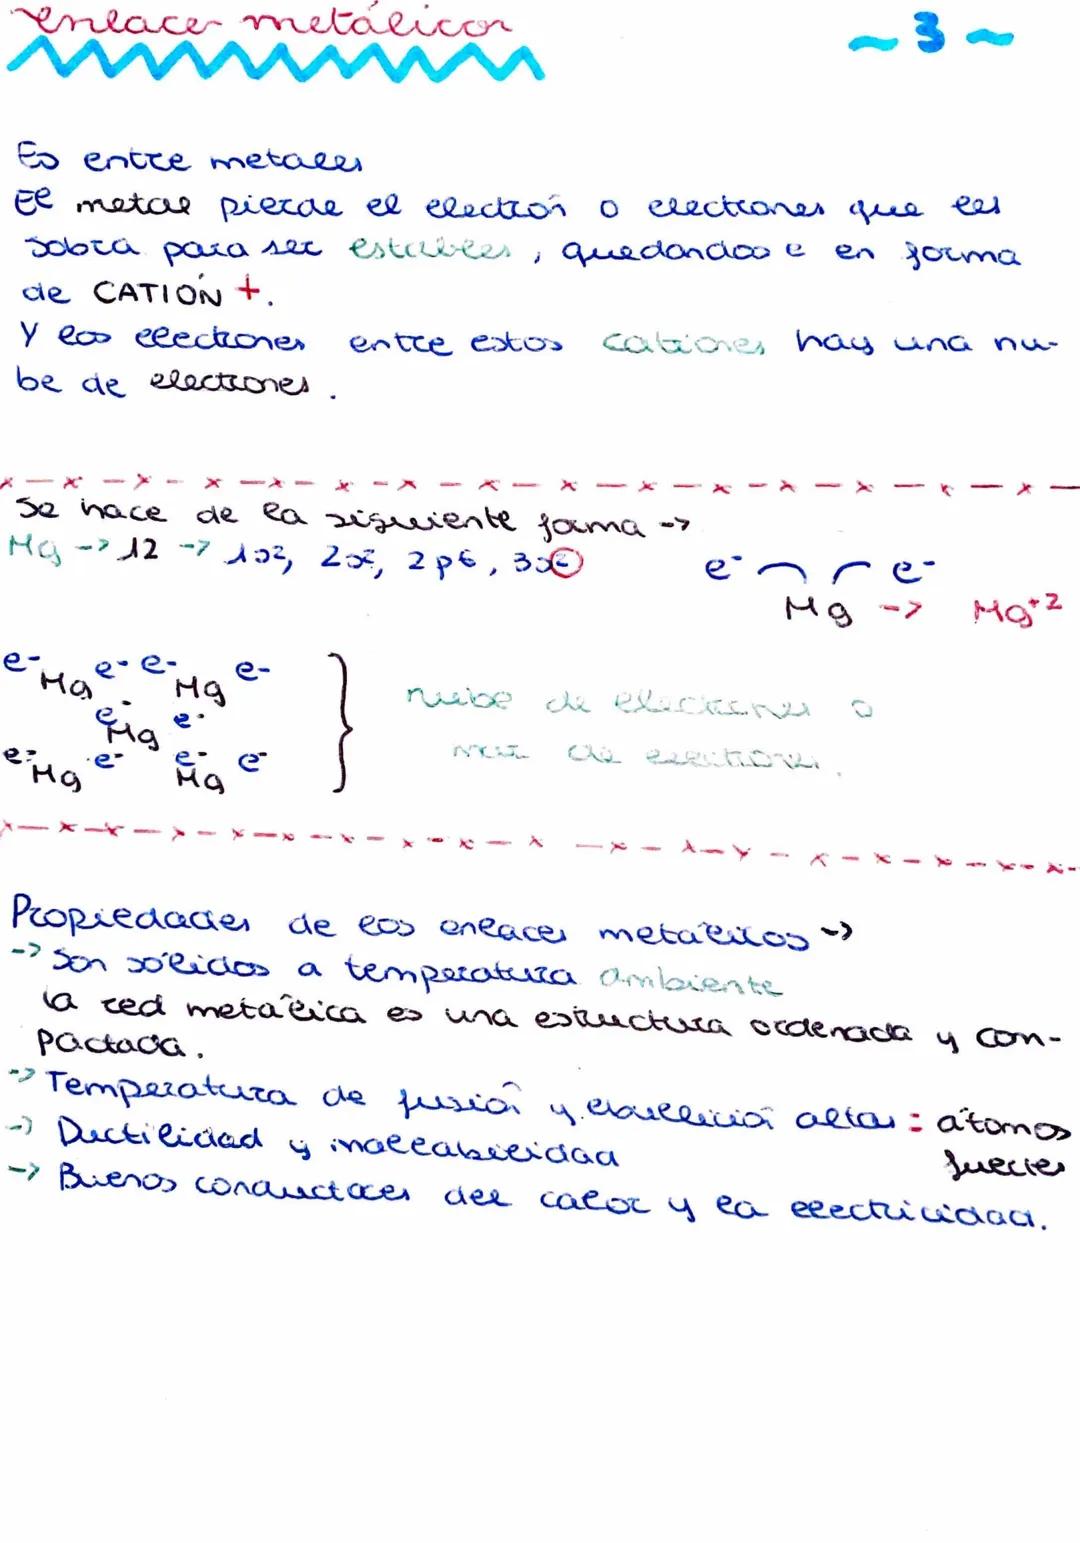 enlaces metálicos
~3~
Es entre metales
El metal pierde el electrón o electrones que les
sobra para ser estables, quedandose en forma
de CATIÓN +.
Y los electrones entre estos cationes hay una nu-
be de electrones.
Se hace de la siguiente forma ->
Mg -> 12 -> 1s², 2s², 2p6, 3s②
e- e-
Mg -> Mg+2
e- Mg e- e- Mg e-
e- Mg e-
e- Mg e- e- Mg e-
nube de electrones o
mar de electrones.
Propiedades de los enlaces metálicos ->
-> Son sólidos a temperatura ambiente
la red metálica es una estructura ordenada y com-
pactada.
-> Temperatura de fusión y ebullición altas: átomos
fuertes
-> Ductilidad y maleabilidad
-> Buenos conductores del calor y la electricidad.